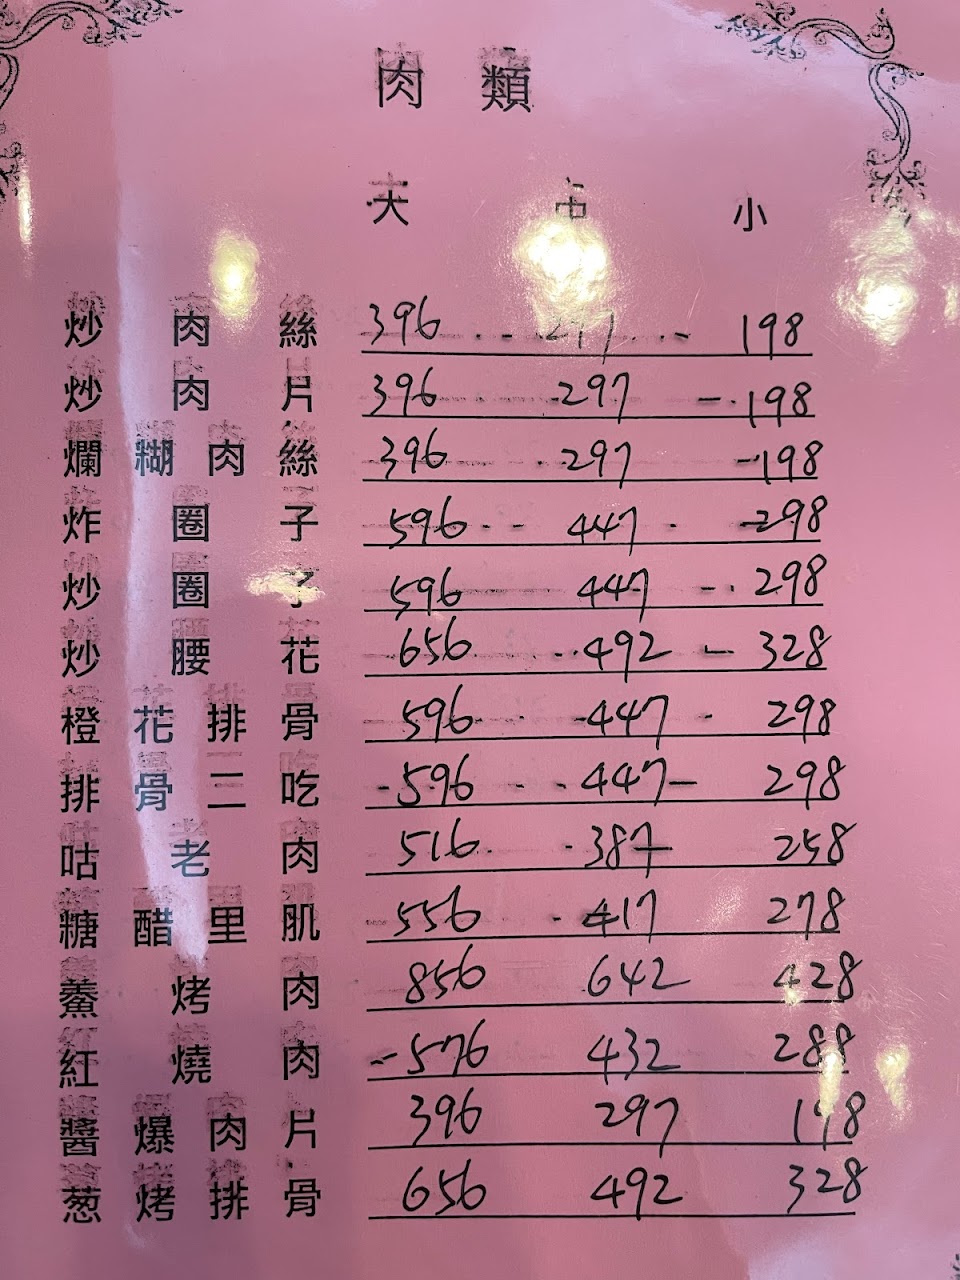 肉類
大 中 小
炒肉絲 396 198
炒肉片 396 297 198
爛糊肉絲 396 297 198
炸圈子 596 447 298
炒圈子 596 447 298
炒腰花 656 492 328
橙花排骨 596 447 298
排骨三吃 596 447 298
咕老肉 516 387 258
糖醋里肌 556 417 278
鯗烤肉 856 642 428
紅燒肉 576 432 288
醬爆肉片 396 297 198
葱烤排骨 656 492 328